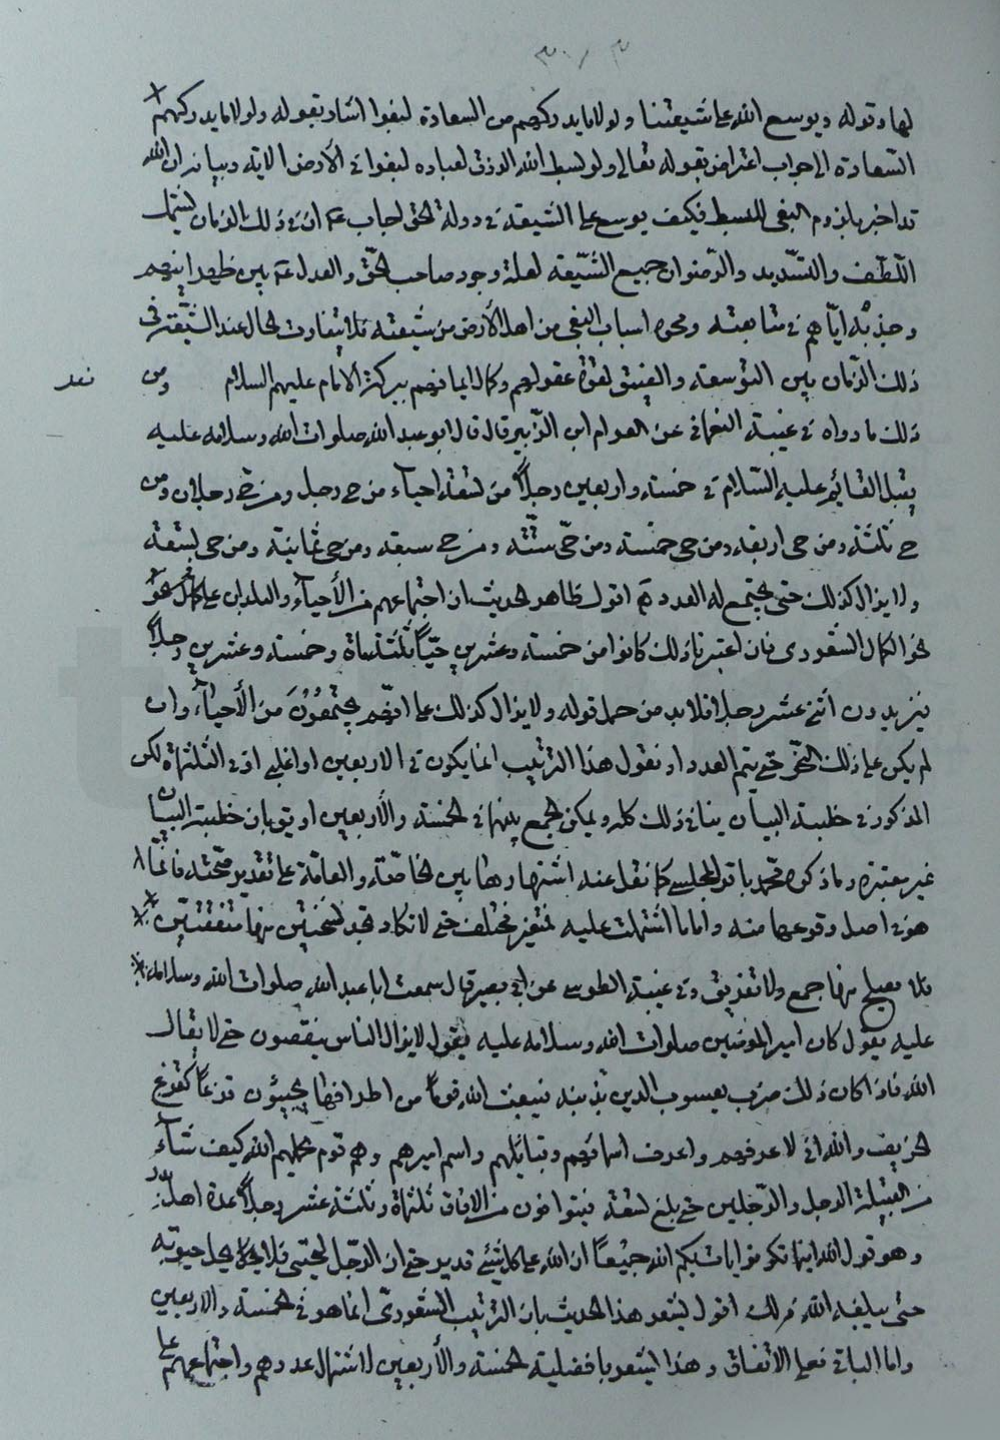 ٣٠/٣
لها وقوله ويوسع الله على شيعتنا ولولا ما يدركهم من السعادة لبغوا اشار بقوله ولولا ما يدركهم
السعادة الى جواب اعتراض بقوله تعالى ولو بسط الله الرزق لعباده لبغوا في الأرض الاية وبيانه ان الله
قد اخبر بلزوم البغى للبسط فكيف يوسع على الشيعة في دولة الحق اجاب ع ان في ذلك الزمان يشمل
اللطف والتسديد والرضوان جميع الشيعة لعلة وجود صاحب الحق والعدل ع بين ظهرانيهم
وجذبه اياهم في متابعته ومحوه اسباب البغى من اهل الأرض من شيعته فلا يتفاوت الحال عند الشيعة في
ذلك الزمان بين التوسعة والضيق لقوة عقولهم وكمال ايمانهم ببركة الامام عليهم السلام ومن
ذلك ما رواه في غيبة النعمانى عن العوام ابن الزبير قال قال ابو عبد الله صلوات الله وسلامه عليه
يقبل القائم عليه السلام في خمسة واربعين رجلاً من تسعة احياء من حى رجل ومن حى رجلان ومن
حى ثلثة ومن حى اربعة ومن حى خمسة ومن حى ستة ومن حى سبعة ومن حى ثمانية ومن حى تسعة
ولا يزال كذلك حتى يجتمع له العدد ه‍ اقول ظاهر الحديث ان اجتماعهم من الأحياء والبلدان على نحو
نحو الكمال الشعورى فان اعتبرنا ذلك كانوا من خمسة وعشرين حيّاً ثلثمائة وخمسة وعشرين رجلاً
يزيدون اثنى عشر رجلا فلا بد من حمل قوله ولا يزال كذلك على انهم يجتمعون من الأحياء وان
لم يكن على ذلك النحو حتى يتم العدد او نقول هذا الترتيب انما يكون في الاربعين او اغلبى او في الثلثمائة لكن
المذكور في خطبة البيان ينافى ذلك كله ويمكن الجمع بينهما في الخمسة والأربعين او يق بان خطبة البيان
غير معتبرة وما ذكره محمد باقر المجلسى كما نقل عنه اشتهارها بين الخاصة والعامة على تقدير صحته فانما
هو في اصل وقوعها منه واما ما اشتملت عليه فمتغير مختلف حتى لا تكاد تجد نسختين منها متفقتين
فلا يصلح منها جمع ولا تفريق وفي غيبة الطوسى عن ابى بصير قال سمعت ابا عبد الله صلوات الله وسلامه
عليه يقول كان امير المؤمنين صلوات الله وسلامه عليه يقول لا يزال الناس ينقصون حتى لا يقال
الله فاذا كان ذلك ضرب يعسوب الدين بذنبه فيبعث الله قوماً من اطرافها يجيئون قزعاً كقزع
الخريف والله انى لاعرفهم واعرف اسمائهم وقبائلهم واسم اميرهم وهم قوم يحملهم الله كيف شاء
من القبيلة الرجل والرجلين حتى بلغ تسعة فيتوافون من الافاق ثلثمائة وثلثة عشر رجلاً عدة اهل بدر
وهو قول الله اينما تكونوا يات بكم الله جميعاً ان الله على كل شىء قدير حتى ان الرجل ليحتبى فلا يحل حبوته
حتى يبلغه الله ذلك اقول يشعر هذا الحديث بان الترتيب الشعورى انما هو في الخمسة والاربعين
واما الباقى فعلى الاتفاق وهذا يشعر بافضلية الخمسة والأربعين لاشتمال عددهم واجتماعهم على